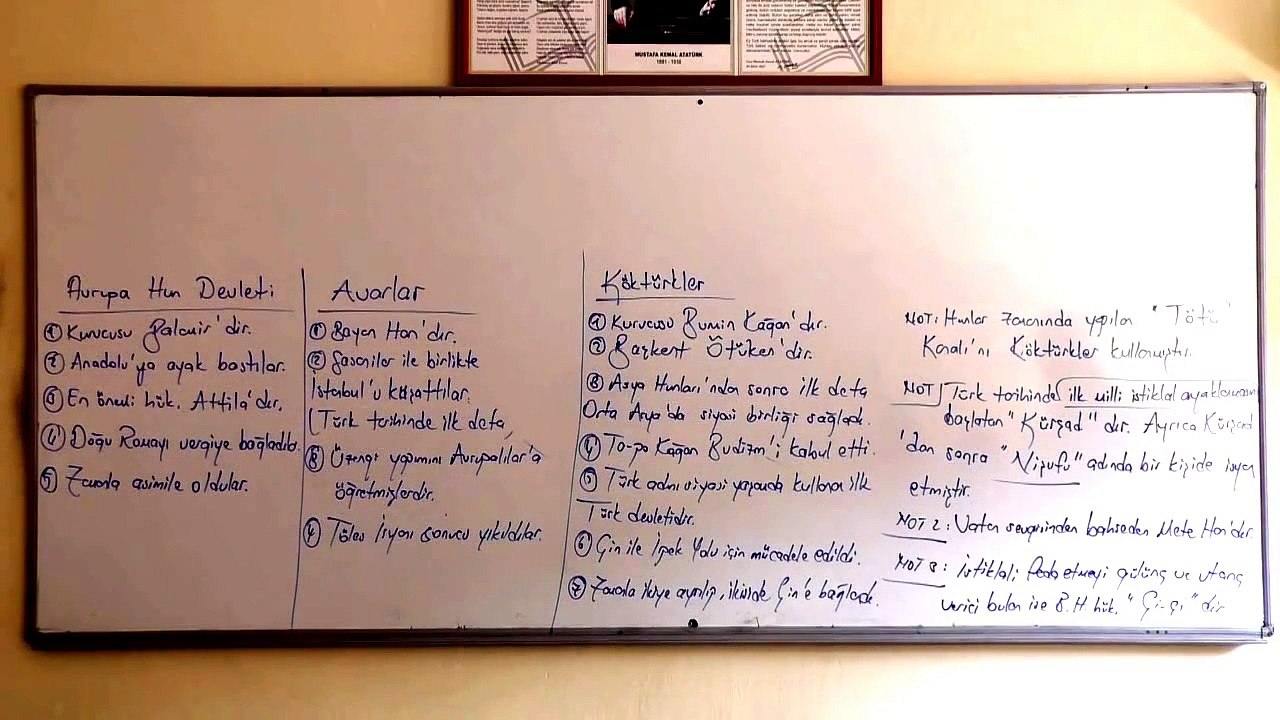 MUSTAFA KEMAL ATATÜRK
1881 - 1938
Avrupa Hun Devleti
① Kurucusu Balamir'dir.
② Anadolu'ya ayak bastılar.
③ En önemli hük. Attila'dır.
④ Doğu Romayı vergiye bağladıla
⑤ Zamanla asimile oldular.
Avarlar
① Bayan Han'dır.
② Sasaniler ile birlikte
İstanbul'u kuşattılar.
(Türk tarihinde ilk defa)
③ Üzengi yapımını Avrupalılar'a
öğretmişlerdir.
④ Töles İsyanı sonucu yıkıldılar.
Köktürkler
① Kurucusu Bumin Kağan'dır.
② Başkent Ötüken'dir.
③ Asya Hunları'ndan sonra ilk defa
Orta Asya'da siyasi birliği sağladı.
④ To-po Kağan Budizm'i kabul etti.
⑤ Türk adını siyasi yaşamda kullanan ilk
Türk devletidir.
⑥ Çin ile İpek Yolu için mücadele edildi.
⑦ Zamanla ikiye ayrılıp, ikiside Çin'e bağlandı.
NOT: Hunlar zamanında yapılan "Tötö"
Kanalı'nı Köktürkler kullanmıştır.
NOT Türk tarihinde ilk milli istiklal ayaklanmasını
başlatan "Kürşad" dır. Ayrıca Kürşad
'dan sonra "Nişufu" adında bir kişide isyan
etmiştir.
NOT 2: Vatan sevgisinden bahseden Mete Han'dır.
NOT 3: İstiklali feda etmeyi gülünç ve utanç
verici bulan ise B.H. hük. "Çi-çi" dir